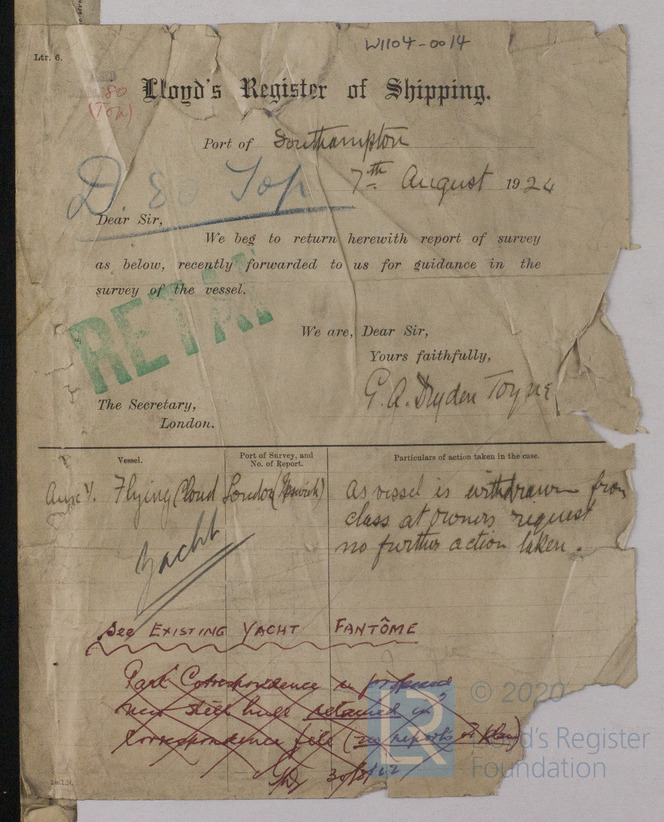 W1104-0014
Ltr. 6.
80
(Top)
Lloyd's Register of Shipping.
Port of Southampton
7th August 1924
D. 80 Top
Dear Sir,
We beg to return herewith report of survey
as below, recently forwarded to us for guidance in the
survey of the vessel.
RETAI
We are, Dear Sir,
Yours faithfully,
G. A. Dryden Toyne
The Secretary,
London.
Vessel.
Port of Survey, and
No. of Report.
Particulars of action taken in the case.
Flying Cloud
London (Ipswich)
As vessel is withdrawn from
class at owners request
no further action taken.
Yacht
See EXISTING YACHT FANTÔME
Part Correspondence re proposed
new steel hull retained in
Correspondence file (see reports on plan)
© 2020
LR
Lloyd's Register
Foundation